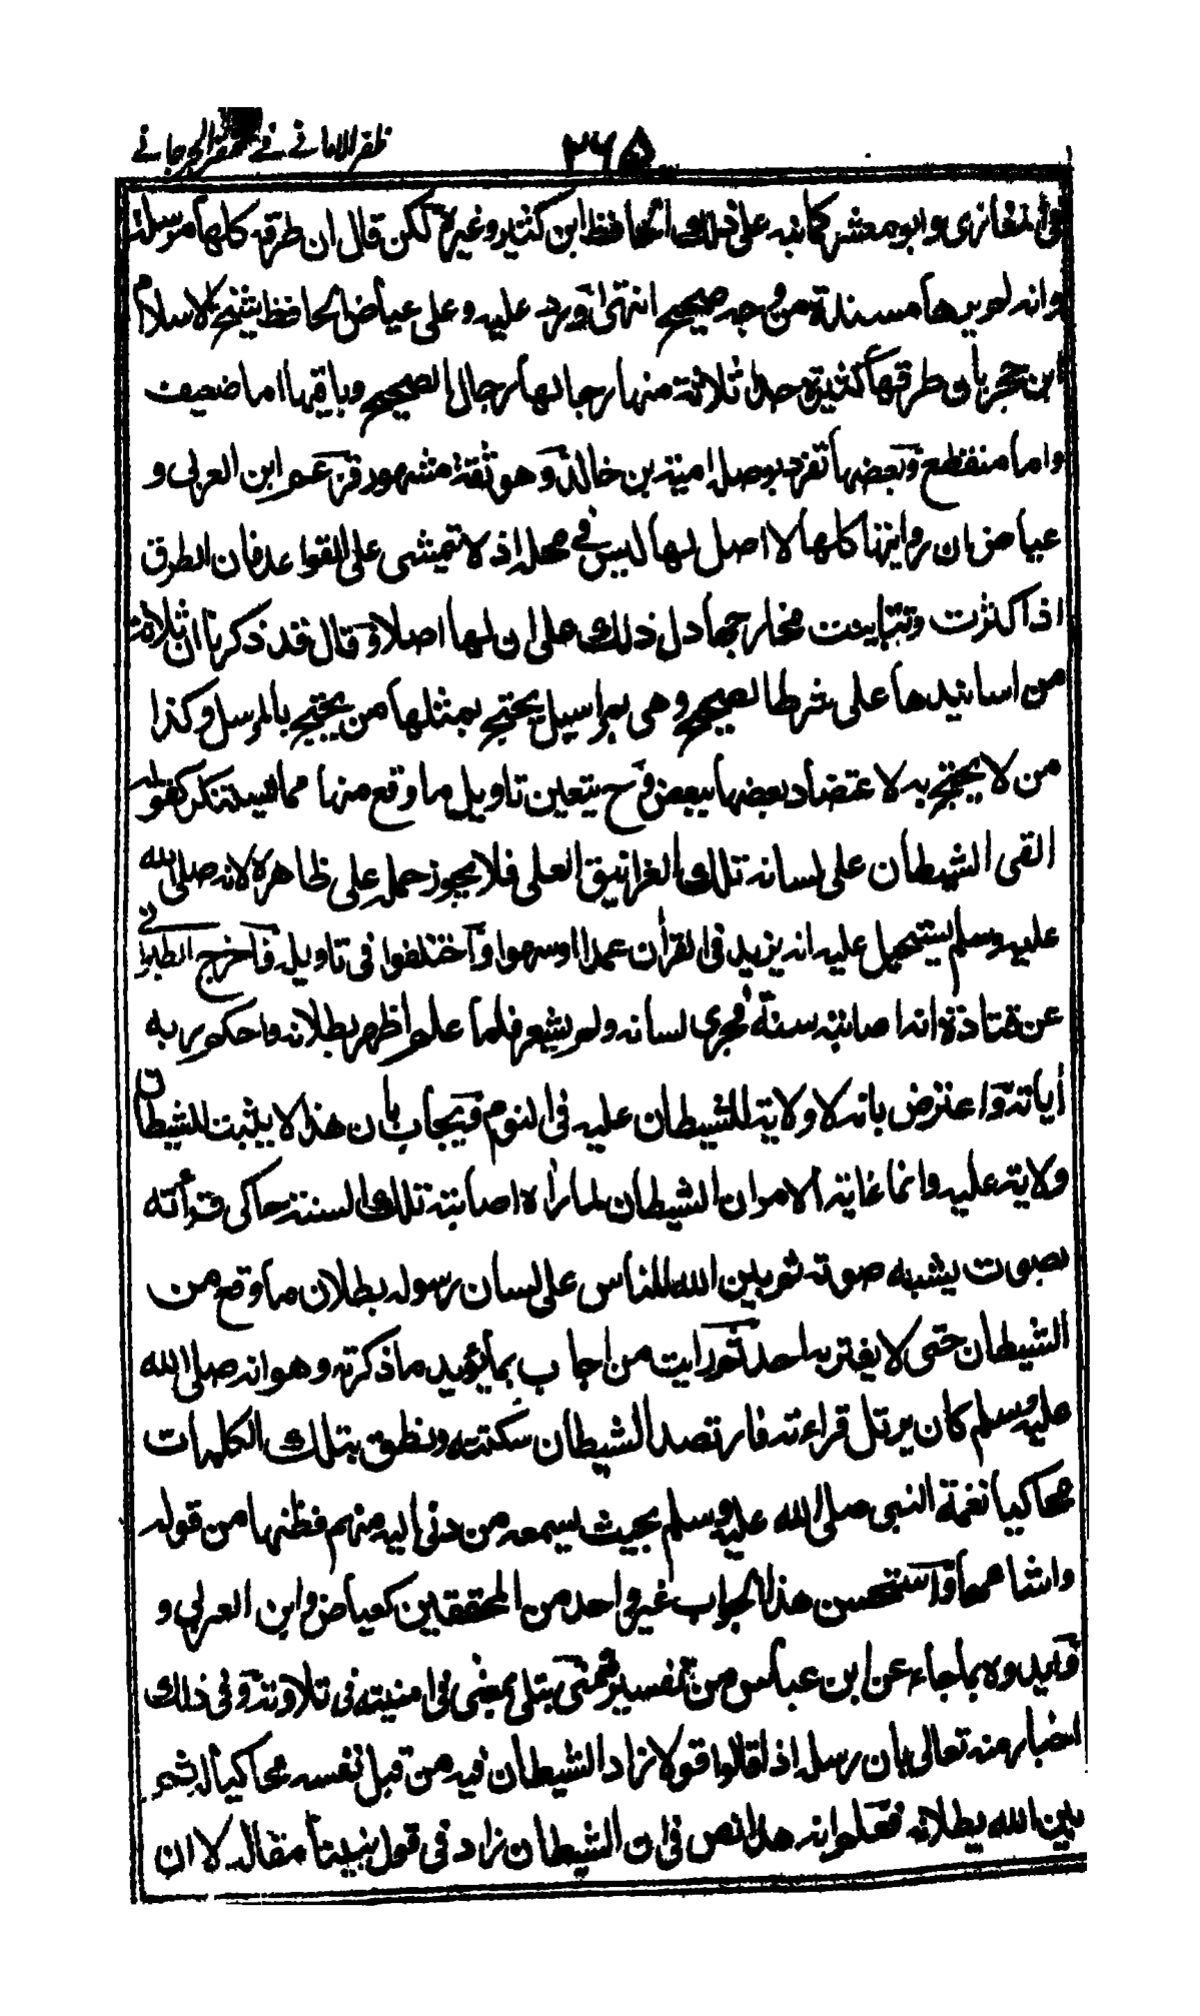 ظفر الامانے فے مختصر الجرجانے
۳۶۵
فى المغازى وابو معشر كما نبه على ذلك الحافظ ابن كثير وغيره لكن قال ان طرقه كلها مرسلة
وانه لم يرها مسندة من وجه صحيح انتهى وَرد عليه وعلى عياض الحافظ شيخ الاسلام
ابن حجر بان طرقها كثيرة جدا ثلاثة منها رجالها رجال الصحيح وباقيها اما ضعيف
واما منقطع وبعضها تفرد بوصله امية بن خالد وهو ثقة مشهور فزعم ابن العربى و
عياض ان روايتها كلها لا اصل لها ليس فى محله اذ لا تتمشى على القواعد فان الطرق
اذا كثرت وتباينت مخارجها دل ذلك على ان لها اصلا وقال قد ذكرنا ان ثلاثة
من اسانيدها على شرط الصحيح وهى مراسيل يحتج بمثلها من يحتج بالمرسل وكذا
من لا يحتج به لاعتضاد بعضها ببعض فح يتعين تاويل ما وقع منها مما يستنكر كقوله
القى الشيطان على لسانه تلك الغرانيق العلى فلا يجوز حمله على ظاهره لانه صلى الله
عليه وسلم يستحيل عليه انه يزيد فى القرأن عمدا او سهوا واختلفوا فى تاويله فاخرج الطبرانے
عن قتادة انه اصابته سنة فجرى لسانه ولم يشعر فلما علم اظهر بطلانه واحكم ربه
أياته واعترض بانه لا ولاية للشيطان عليه فى النوم فيجاب بأن هذا لا يثبت للشيطان
ولاية عليه وانما غاية الامر ان الشيطان لما رأه اصابته تلك السنة حاكى قرأته
بصوت يشبه صوته ثم بين الله للناس على لسان رسوله بطلان ما وقع من
الشيطان حتى لا يغتر به احد ثم رايت من اجاب بما يؤيد ما ذكرته وهو انه صلى الله
عليه وسلم كان يرتل قراءته فارتصد الشيطان سكتته ونطق بتلك الكلمات
محاكيا نغمة النبى صلى الله عليه وسلم بحيث سمعه من دنى اليه منهم فظنها من قوله
واشاعها واستحسن هذا الجواب غير واحد من المحققين كعياض وابن العربى و
فايدوه بما جاء عن ابن عباس من تفسير تمنى بتلى بمعنى فى امنيته فى تلاوته وفى ذلك
اخبار منه تعالى بان رسله اذا قالوا قولا زاد الشيطان فيه من قبل نفسه محاكيا له ثم
يبين الله بطلانه فعلم انه هذا نص فى ان الشيطان زاد فى قول نبينا مقاله لا ان